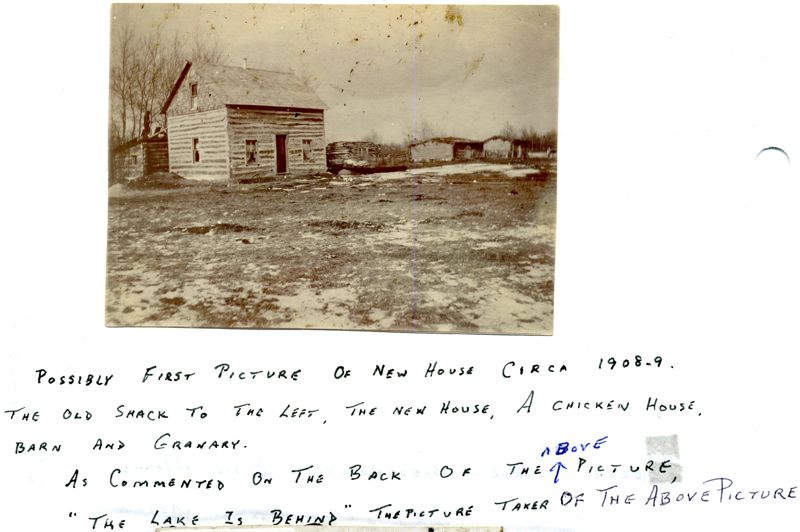 POSSIBLY FIRST PICTURE OF NEW HOUSE CIRCA 1908-9.
THE OLD SHACK TO THE LEFT, THE NEW HOUSE, A CHICKEN HOUSE,
BARN AND GRANARY.
AS COMMENTED ON THE BACK OF THE ABOVE PICTURE,
"THE LAKE IS BEHIND" THE PICTURE TAKER OF THE ABOVE PICTURE